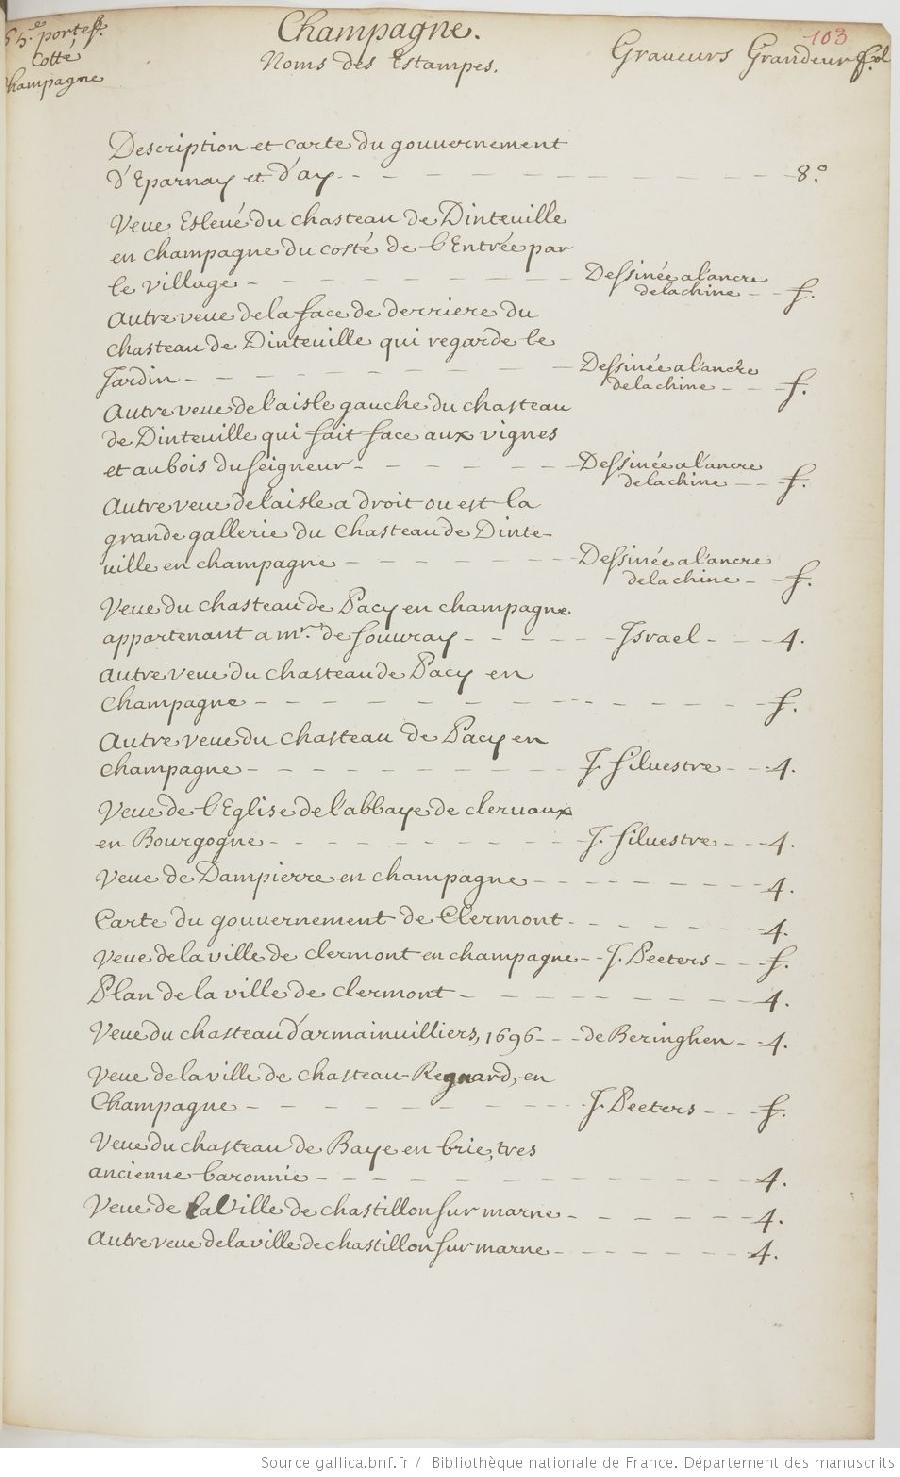 55.e portef.
Cotté
Champagne
Champagne.
103
Noms des Estampes.
Graveurs Grandeur fol
Description et carte du gouuernement
d'Eparnay et d'ay - - - - - - - - - - 8.°
Veue Eslevé du chasteau de Dinteuille
en champagne du costé de l'Entrée par
le village - - - - - - Dessinée a l'ancre
de la chine - - f.
Autre veue de la face de derriere du
chasteau de Dinteuille qui regarde le
Jardin - - - - - - - Dessinée a l'ancre
de la chine - - f.
Autre veue de l'aisle gauche du chasteau
de Dinteuille qui fait face aux vignes
et au bois du seigneur - - - - - Dessinée a l'ancre
de la chine - - f.
Autre veue de l'aisle a droit ou est la
grande gallerie du chasteau de Dinte-
uille en champagne - - - - - Dessinée a l'ancre
de la chine - - f.
Veue du chasteau de Pacy en champagne
appartenant a mr. de souuray - - - - - Israel - - - 4.
Autre veue du chasteau de Pacy en
Champagne - - - - - - - - - - - - - f.
Autre veue du chasteau de Pacy en
champagne - - - - - - - - - J. siluestre - - 4.
Veue de l'Eglise de l'abbaye de cleruaux
en Bourgogne - - - - - - - - - J. siluestre - - 4.
Veue de Dampierre en champagne - - - - - - - 4.
Carte du gouuernement de Clermont - - - - - - 4.
Veue de la ville de clermont en champagne - - J. Peeters - - f.
Plan de la ville de clermont - - - - - - - - 4.
Veue du chasteau d'armainuilliers, 1696 - - - de Beringhen - - 4.
Veue de la ville de chasteau-Regnard, en
Champagne - - - - - - - - - J. Peeters - - f.
Veue du chasteau de Baye en brie, tres
ancienne baronnie - - - - - - - - - - - 4.
Veue de la Ville de chastillon sur marne - - - - - - 4.
Autre veue de la ville de chastillon sur marne - - - - - - 4.
Source gallica.bnf.fr / Bibliothèque nationale de France. Département des manuscrits